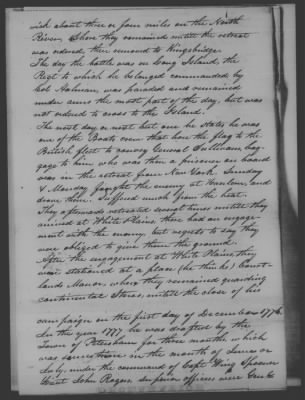 wich about three or four miles on the North
River, where they remained until the retreat
was ordered, then removed to Kingsbridge.
The day the battle was on Long Island, the
Regt to which he belonged commanded by
Col. Holman, was paraded and remained
under arms the most part of the day, but was
not ordered to cross to the Island.
The next day or next but one he states he was
one of the Boats crew that bore the flag to the
British fleet to convey General Sullivan, bag-
gage to him who was then a prisoner on board
was in the retreat from New York Sunday
& Monday fought the enemy at Harlem, and
drove them. Suffered much from the heat.
They afterwards retreated several times untill they
arrived at White Plains, there had an engage-
ment with the enemy, but regrets to say they
were obliged to give them the ground.
After the engagement at White Plains, they
were stationed at a place (he thinks) Court-
lands Manor, where they remained guarding
continental Stores, untill the close of his
campaign on the first day of December 1776.
In the year 1777, he was drafted by the
Town of Petersham for three months, which
was sometime in the month of June or
July, under the command of Capt. Wing Spooner
Lieut John Rogers, superior officers were